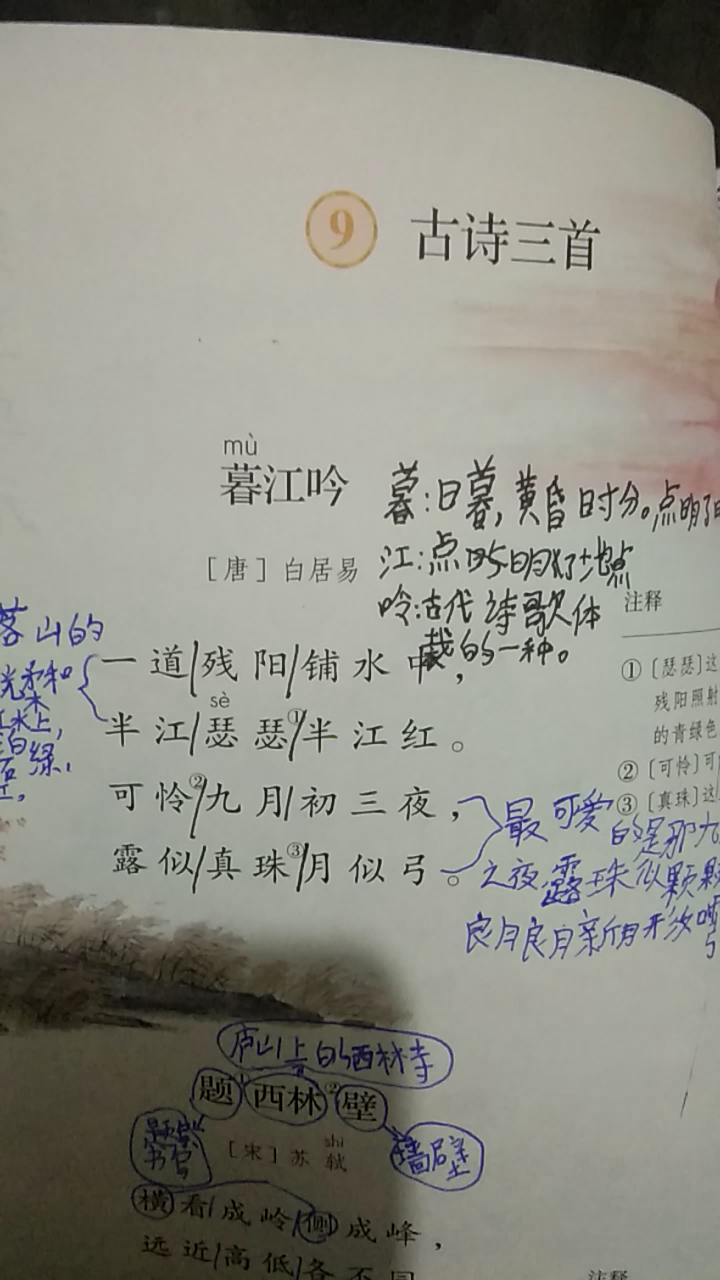 9 古诗三首
mù
暮江吟
暮:日暮,黄昏时分。点明了
[唐]白居易
江:点明了地点
吟:古代诗歌体
裁的一种。
注释
落山的
光柔和
江水上,
绿,
红,
一道/残阳/铺水中,
sè
半江/瑟瑟①/半江红。
可怜②/九月/初三夜,
露似/真珠③/月似弓。
①[瑟瑟]这
残阳照射
的青绿色
②[可怜]可
③[真珠]这
最可爱的是那九
之夜露珠似颗颗
新月形如
弓
庐山上的西林寺
题①西林②壁
题写
书写
墙壁
shì
[宋]苏轼
横看/成岭/侧成峰,
远近/高低/各不同
注释